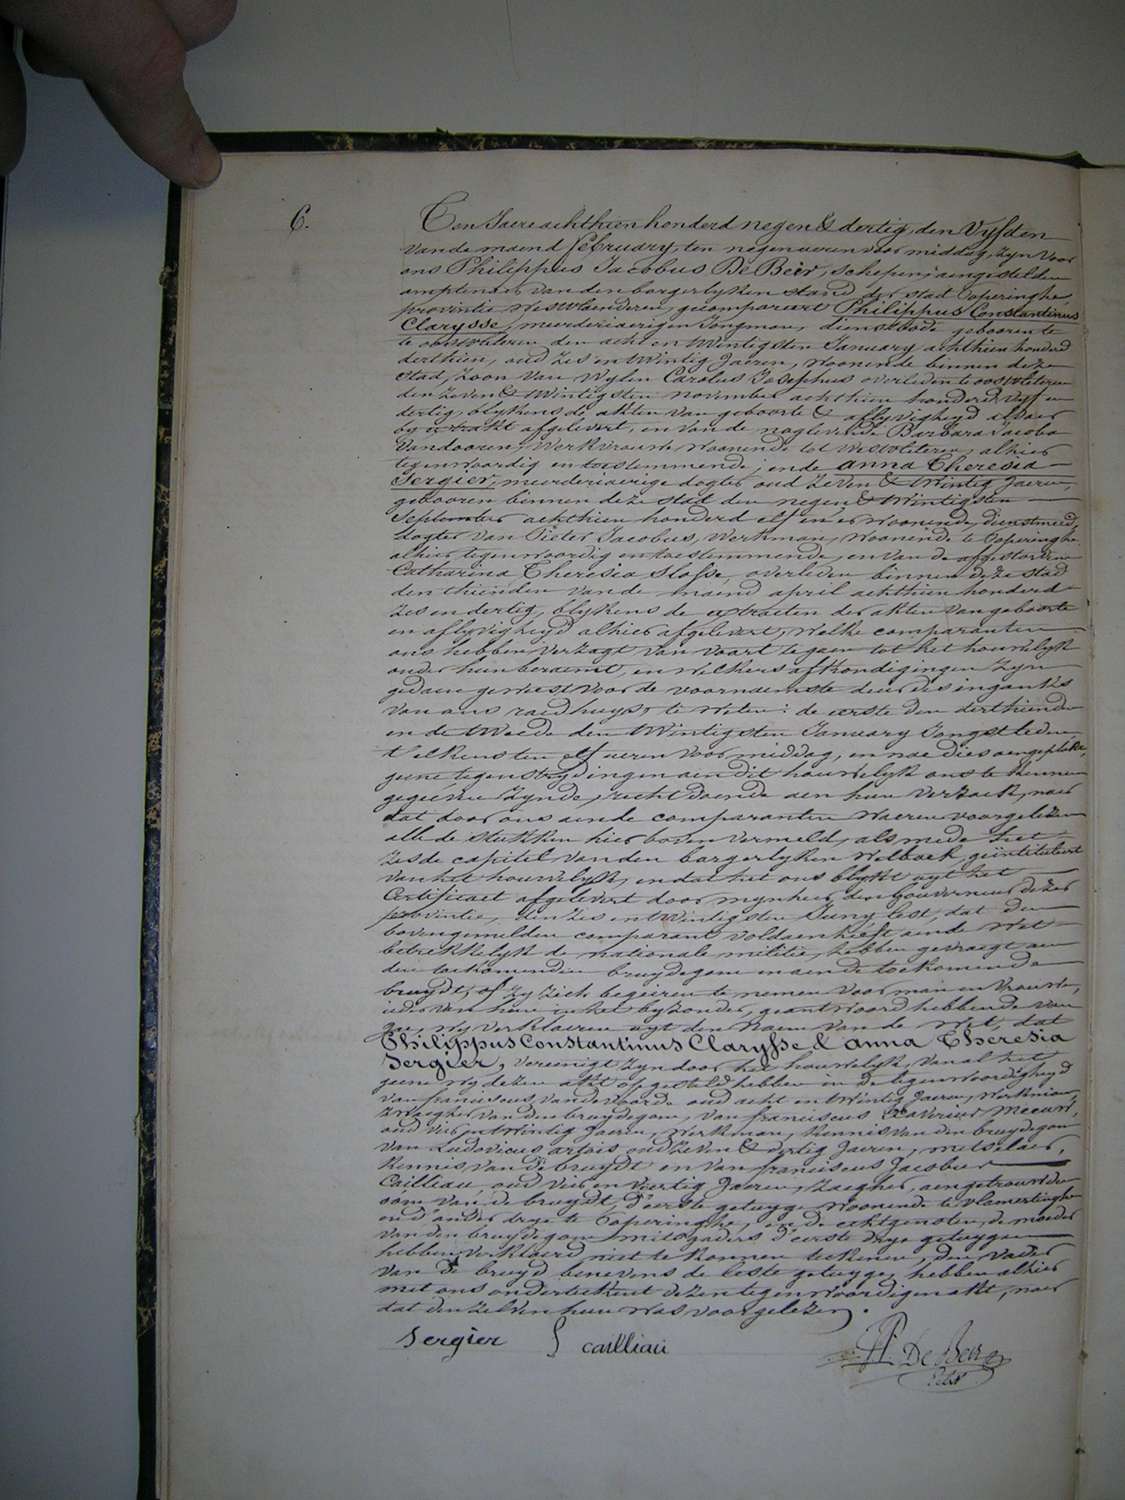 6.
Ten Jaere achthien honderd negen & dertig, den Vyfden
van de maend february, ten negen ueren voor middag, zyn voor
ons Philippus Jacobus De Beir, schepen, aengestelden
amptenaer van den borgerlyken stand der stad Poperinghe,
provintie Westvlaenderen, gecompareert Philippus Constantinus
Clarysse, meerderjaerigen Jongman, dienstbode geboren te
te oostvleteren den acht en twintigsten January achthien honderd
derthien, oud zes en twintig Jaeren, woonende binnen deze
stad, zoon van wylen Carolus Josephus overleden te oostvleteren
den zeven & twintigsten november achthien honderd vyf en
dertig, blykens de akten van geboorte & aflyvigheyd alhier
by extrakt afgelevert, en van de naglevende Barbara Jacoba
Vandooren, werkvrouwe woonende tot westvleteren, alhier
tegenwoordig en toestemmende; ende anna Theresia
Sergier, meerderjaerige dogter oud zeven & twintig Jaeren,
gebooren binnen deze stad den negen & twintigsten
September achthien honderd elf en er woonende, dienstmeid,
dogter van Pieter Jacobus, werkman, woonende te Poperinghe
alhier tegenwoordig en toestemmende, en van de afgestorven
Catharina Theresia Slosse, overleden binnen deze stad
den thienden van de maend april achthien honderd
zes en dertig, blykens de extraeten der akten van geboorte
en aflyvigheyd alhier afgelevert, welke comparanten
ons hebben verzogt van voort te gaen tot het houwelyk
onder hun beraemt, en welkers afkondigingen zyn
gedaen geweest voor de voornaemste deur des ingangs
van ons raedhuys, te weten: de eerste den derthienden
en de tweede den twintigsten January Jongstleden
t'elkens ten elf ueren voor middag, en nae dies aengeplakt,
geene tegenstrydingen aen dit houwelyk ons te kennen
gegeven zynde, recht doende aen hun verzoek, naer
dat door ons aende comparanten waeren voorgelezen
alle de stukken hier boven vermeld, als mede het
zesde capitel van den borgerlyken wetboek, geïntituleert
van het houwelyk, en dat het ons blykt uyt het
Certificaet afgelevert door mynheer den Gouverneur dezer
provintie, den zes en twintigsten Juny lest, dat den
bovengemelden comparant voldaen heeft aende wet
betrekkelyk de nationale militie, hebben gevraegt aen
den toekomenden bruydegom en aende toekomende
bruydt, of zy zich begeiren te nemen voor man en vrouwe,
ieder van hun in het byzonder, geantwoord hebbende van
Jae, wy verklaeren uyt den naem van de wet, dat
Philippus Constantinus Clarysse & anna Theresia
Sergier, vereenigt zyn door het houwelyk, van al het
geene wy dezen akt opgesteld hebben in de tegenwoordigheyd
van franciscus Vandevoorde oud acht en twintig Jaeren, werkman,
zwaegher van den bruydegom, van franciscus Xaverius Meeuw,
oud vier en twintig Jaeren, werkman, kennis van den bruydegom
van Ludovicus arfois oud zeven & dertig Jaeren, metselaer,
kennis van de bruydt en van franciscus Jacobus
Cailliau, oud vier en veertig Jaeren, zaegher, aengetrouwden
oom van de bruydt, d'eerste getuyge woonende te vlamertinghe
en d'ander drye te Poperinghe, en de echtgenoten, de moeder
van den bruydegom mitsgaders d'eerste drye getuygen
hebben verklaerd niet te konnen teekenen, den vader
van de bruyd benevens de leste getuyge, hebben alhier
met ons onderteekent dezen tegenwoordigen akt, naer
dat den zelven hun was voorgelezen.
Sergier f cailliau PJ. De Beir